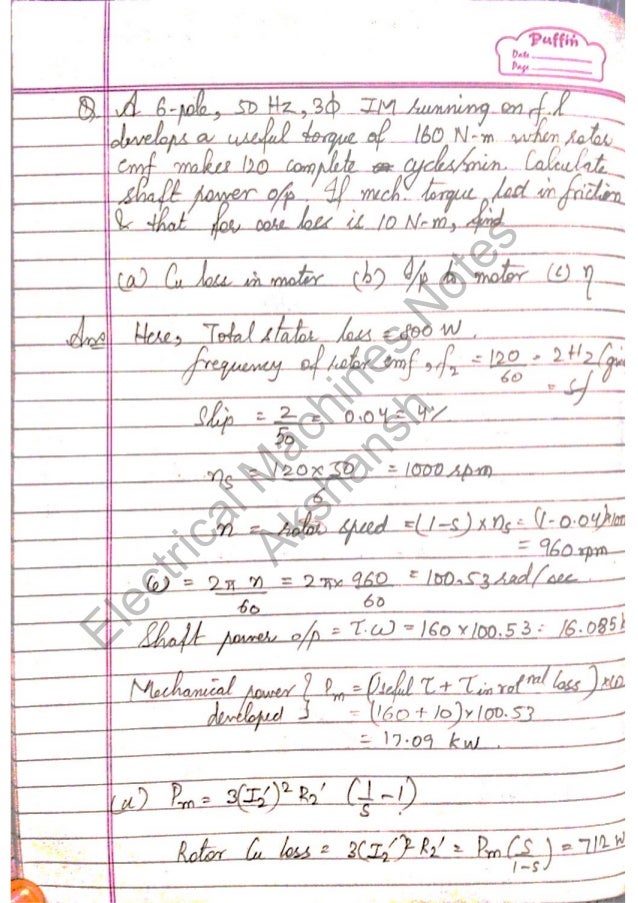 Puffin
Date
Page
Q. A 6-pole, 50 Hz, 3ϕ IM running on f.l
develops a useful torque of 160 N-m when rotor
emf makes 120 complete cycles/min. Calculate
shaft power o/p. If mech. torque lost in friction
& that for core loss is 10 N-m, find
(a) Cu loss in motor (b) I/p to motor (c) η
Ans Here, Total stator loss = 800 W.
frequency of rotor emf, f₂ = 120/60 = 2 Hz
= sf
Slip = 2/50 = 0.04 = 4%
nₛ = 120 × 50/6 = 1000 rpm
n = rotor speed = (1-s) × nₛ = (1-0.04) × 100
= 960 rpm
ω = 2π n/60 = 2π × 960/60 = 100.53 rad/sec
Shaft power o/p = T.ω = 160 × 100.53 = 16.085
Mechanical power } Pm = (Useful τ + τ in rotⁿᵃˡ loss) × ω
developed } = (160 + 10) × 100.53
= 17.09 kw.
(a) Pm = 3(I₂')² R₂' (1/s - 1)
Rotor Cu loss = 3(I₂')² R₂' = Pm (s/1-s) = 712 W
Electrical Machines Notes
Akshansh